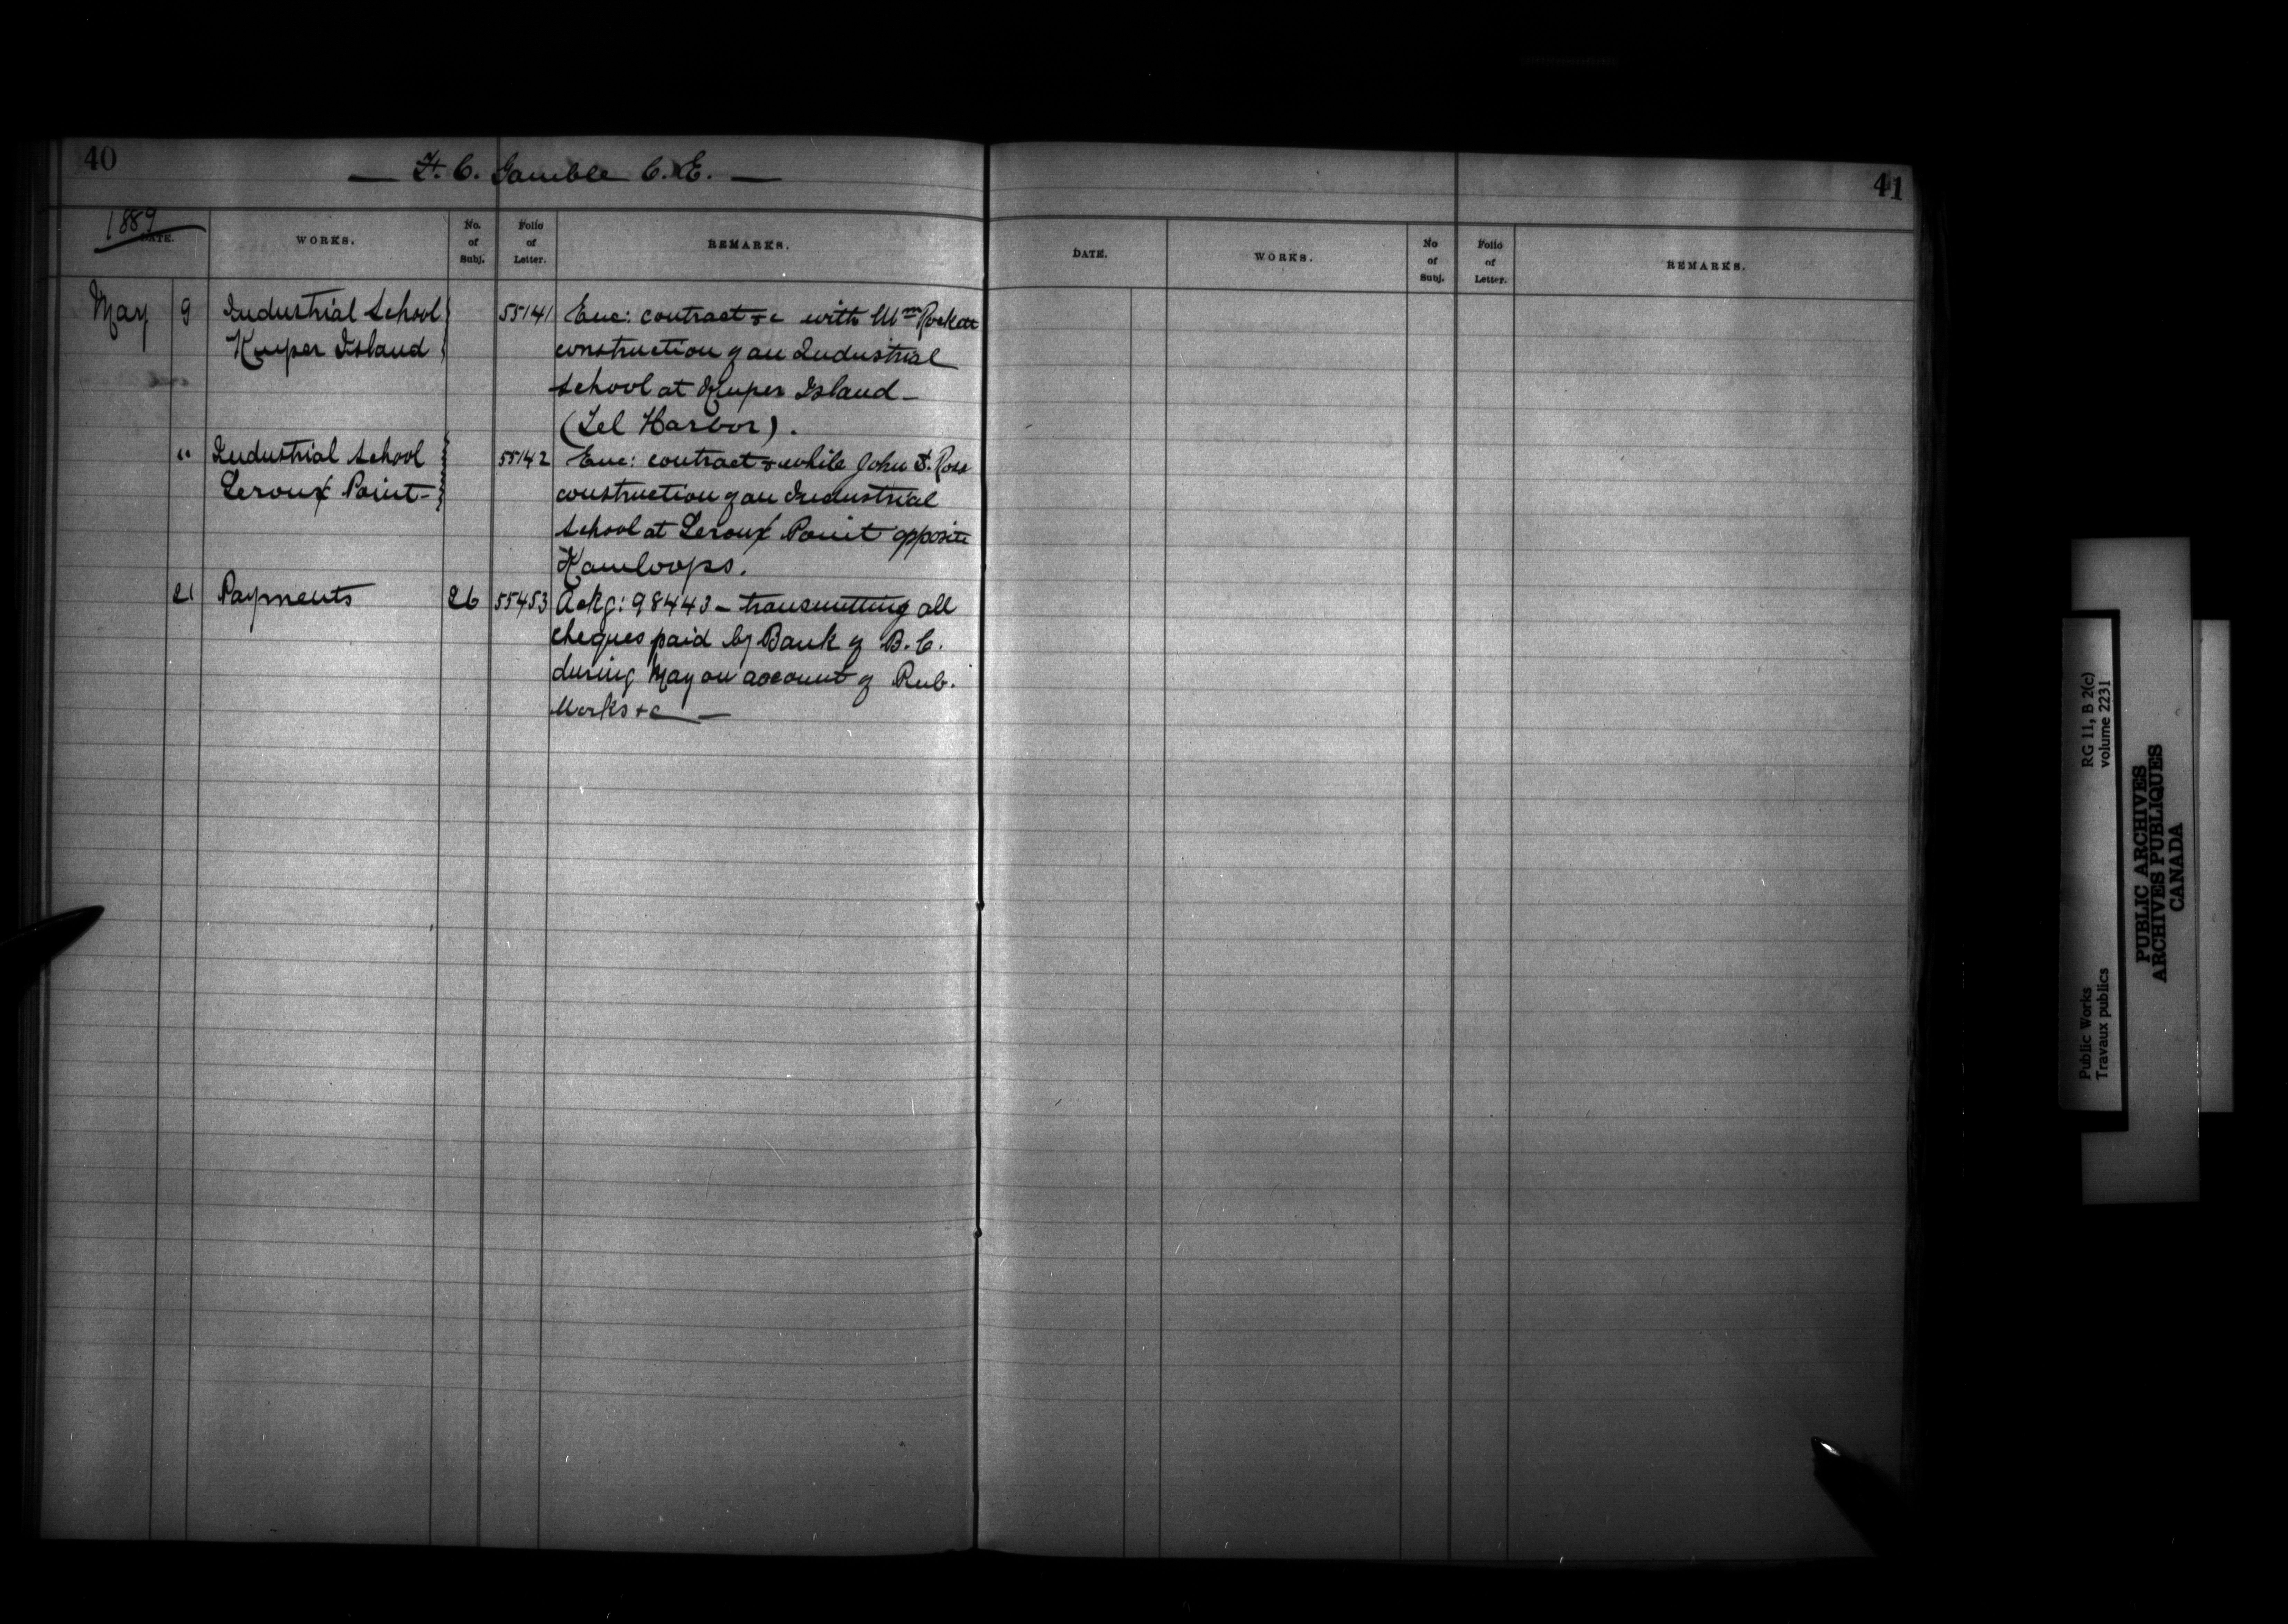 40
— F. C. Gamble C.E. —
1889
DATE. WORKS. No. of Subj. Folio of Letter. REMARKS.
May 9 Industrial School 55141 Enc: contract &c with Wm Rockett
Kuper Island construction of an Industrial
School at Kuper Island –
(Tel Harbor).
" Industrial School 55142 Enc: contract & while John T. Ross
Leroux Point – construction of an Industrial
School at Leroux Point opposite
Kamloops.
21 Payments 26 55453 Ackg: 98443 – transmitting all
cheques paid by Bank of B.C.
during May on account of Pub.
Works &c —
41
DATE. WORKS. No of Subj. Folio of Letter. REMARKS.
Public Works RG 11, B 2(c)
Travaux publics volume 2231
PUBLIC ARCHIVES
ARCHIVES PUBLIQUES
CANADA